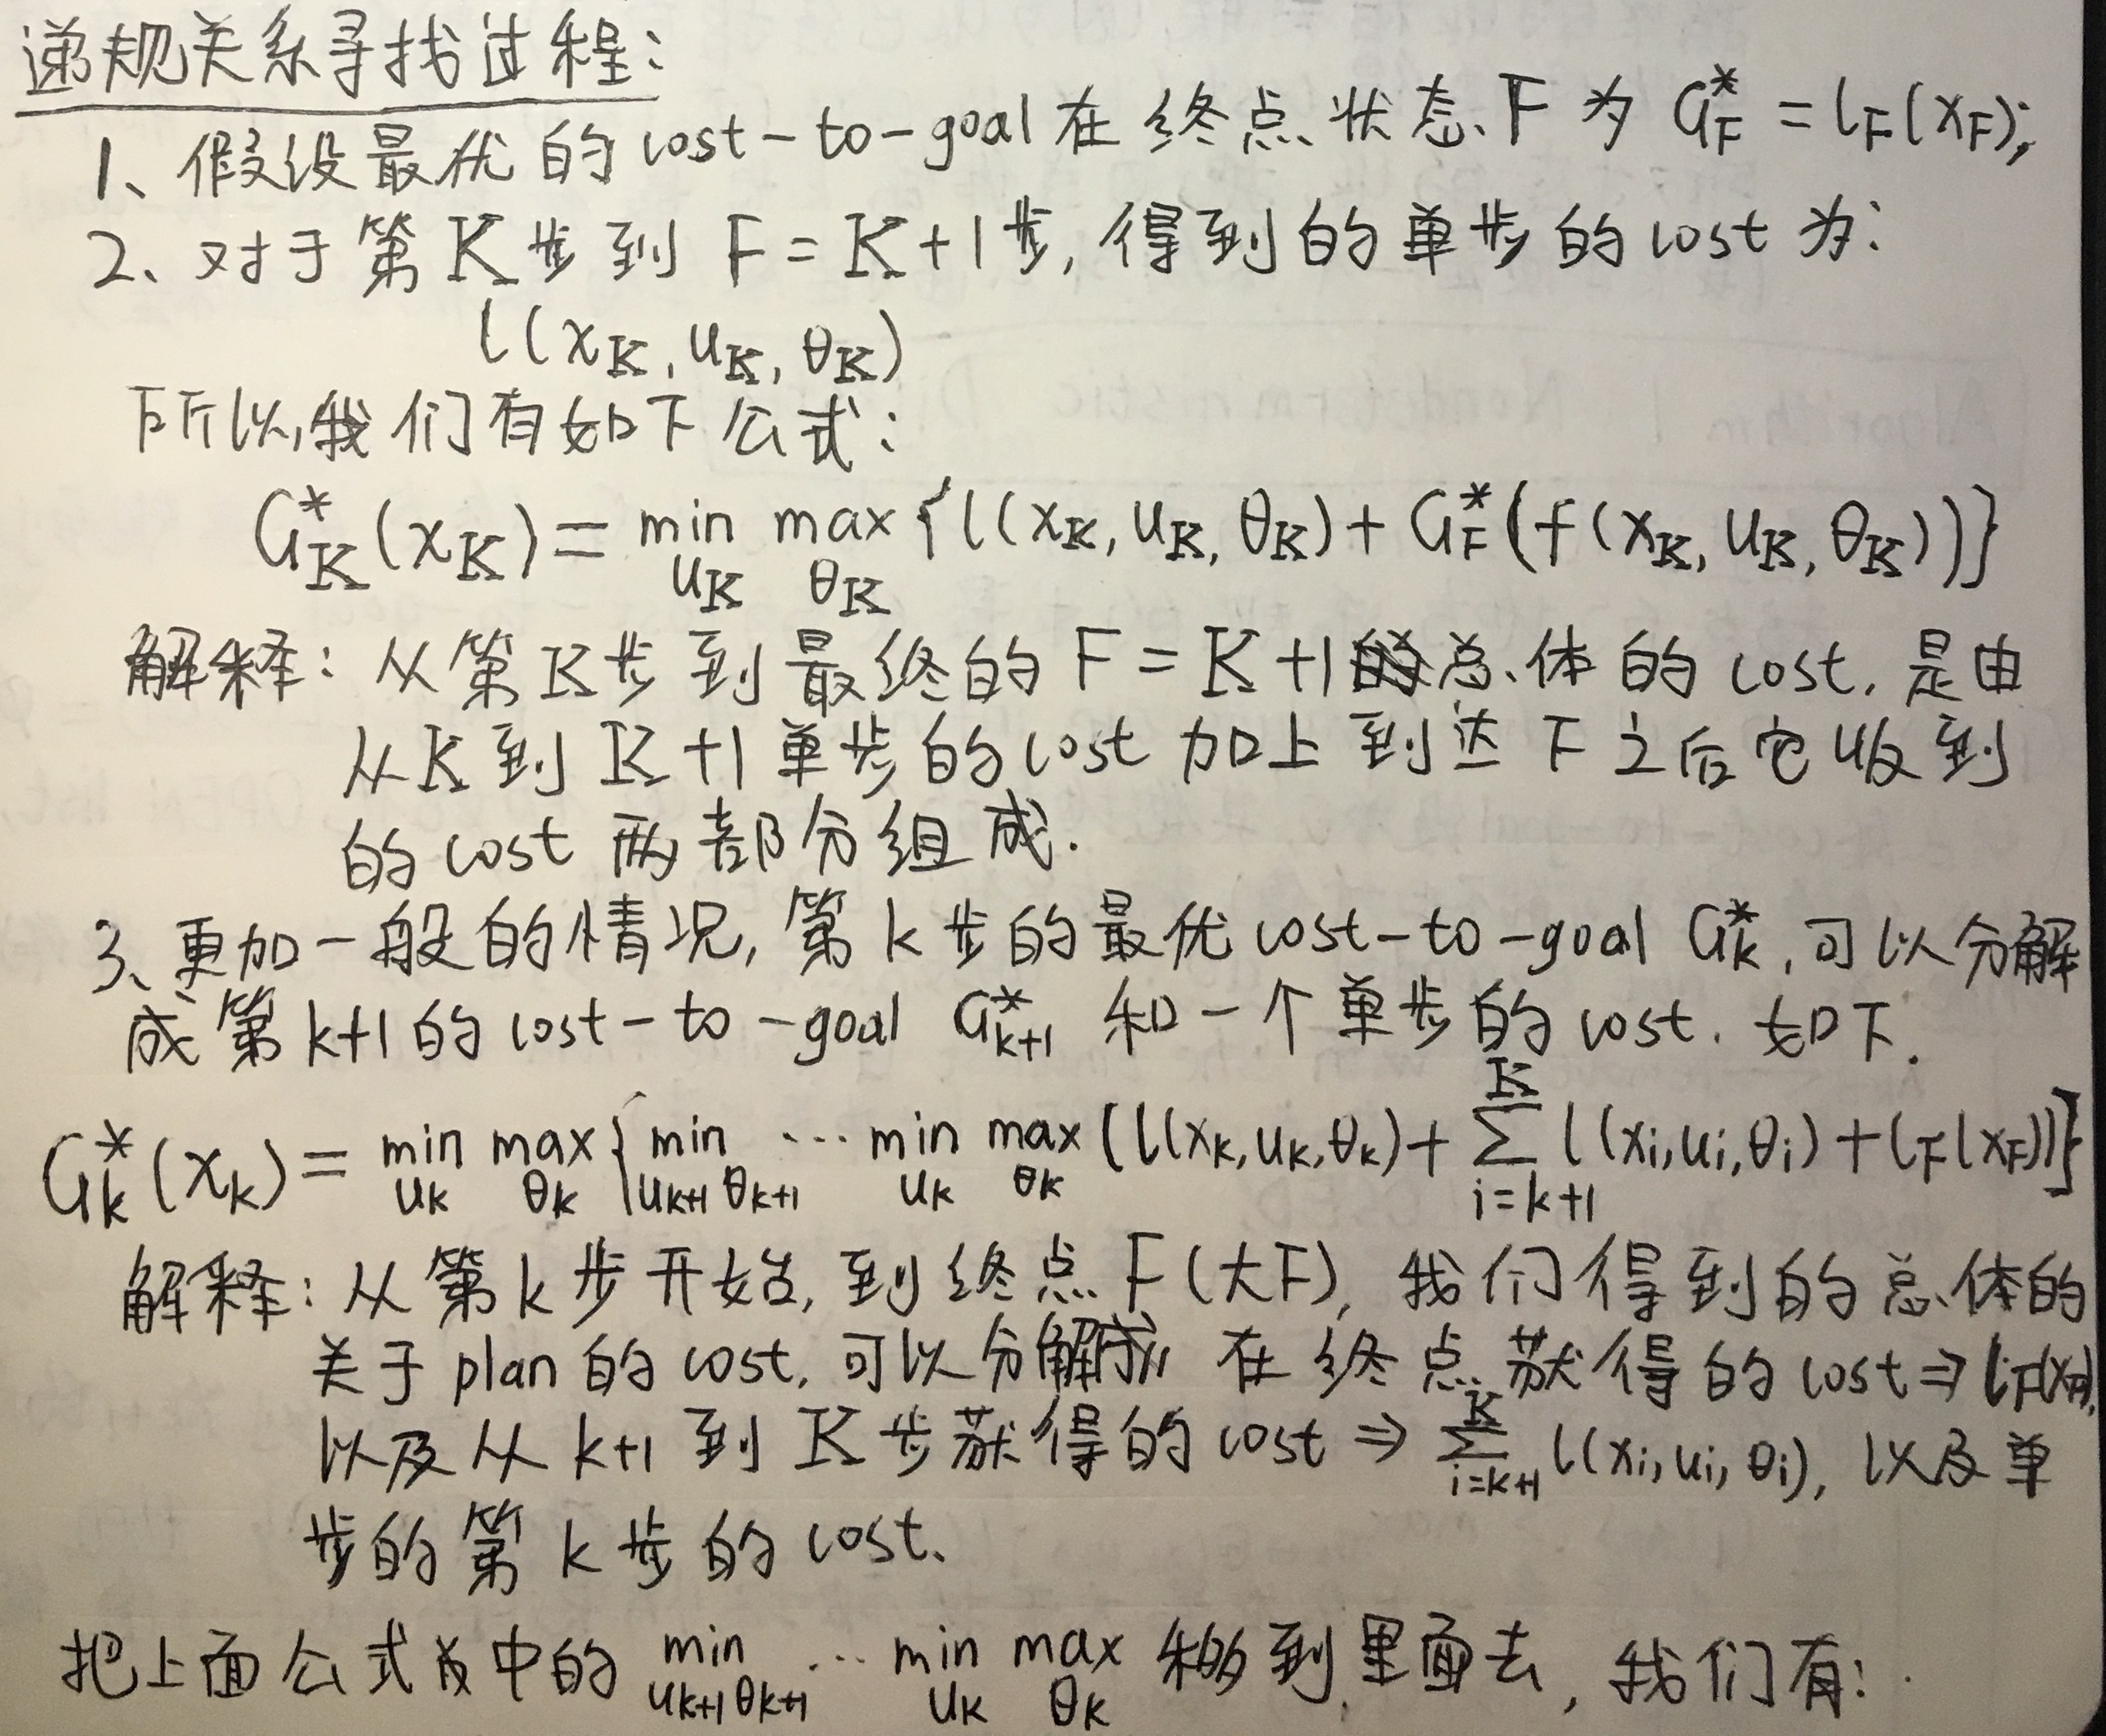 递规关系寻找过程:
1、假设最优的cost-to-goal在终点状态F为 G*_F = l_F(x_F);
2、对于第K步到 F=K+1步,得到的单步的cost为:
l(x_K, u_K, θ_K)
所以,我们有如下公式:
G*_K(x_K) = min_{u_K} max_{θ_K} {l(x_K, u_K, θ_K) + G*_F(f(x_K, u_K, θ_K))}
解释: 从第K步到最终的F=K+1的总体的cost,是由
从K到K+1单步的cost加上到达F之后它收到
的cost两部分组成.
3、更加一般的情况,第k步的最优cost-to-goal G*_k,可以分解
成第k+1的cost-to-goal G*_{k+1} 和一个单步的cost.如下.
G*_k(x_k) = min_{u_k} max_{θ_k} {min_{u_{k+1}} _{θ_{k+1}} ... min_{u_K} max_{θ_K} (l(x_k, u_k, θ_k) + Σ_{i=k+1}^{K} l(x_i, u_i, θ_i) + l_F(x_F))}
解释: 从第k步开始,到终点F(大F),我们得到的总体的
关于plan的cost,可以分解成 在终点获得的cost⇒l_F(x_F),
以及从k+1到K步获得的cost⇒Σ_{i=k+1}^{K} l(x_i, u_i, θ_i),以及单
步的第k步的cost、
把上面公式中的 min_{u_{k+1}} _{θ_{k+1}} ... min_{u_K} max_{θ_K} 移到里面去,我们有: